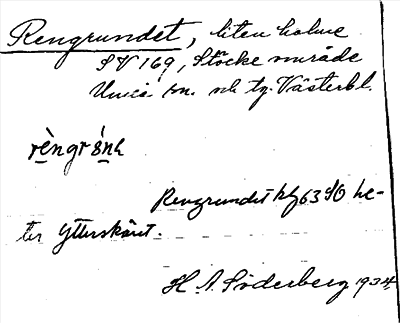 Rengrundet, liten holme
SV 169, Stöcke område
Umeå sn. och tg. Västerbl.
Rengrundet blg 63 SO he-
ter Ytterskäret.
H. A. Söderberg 1934.